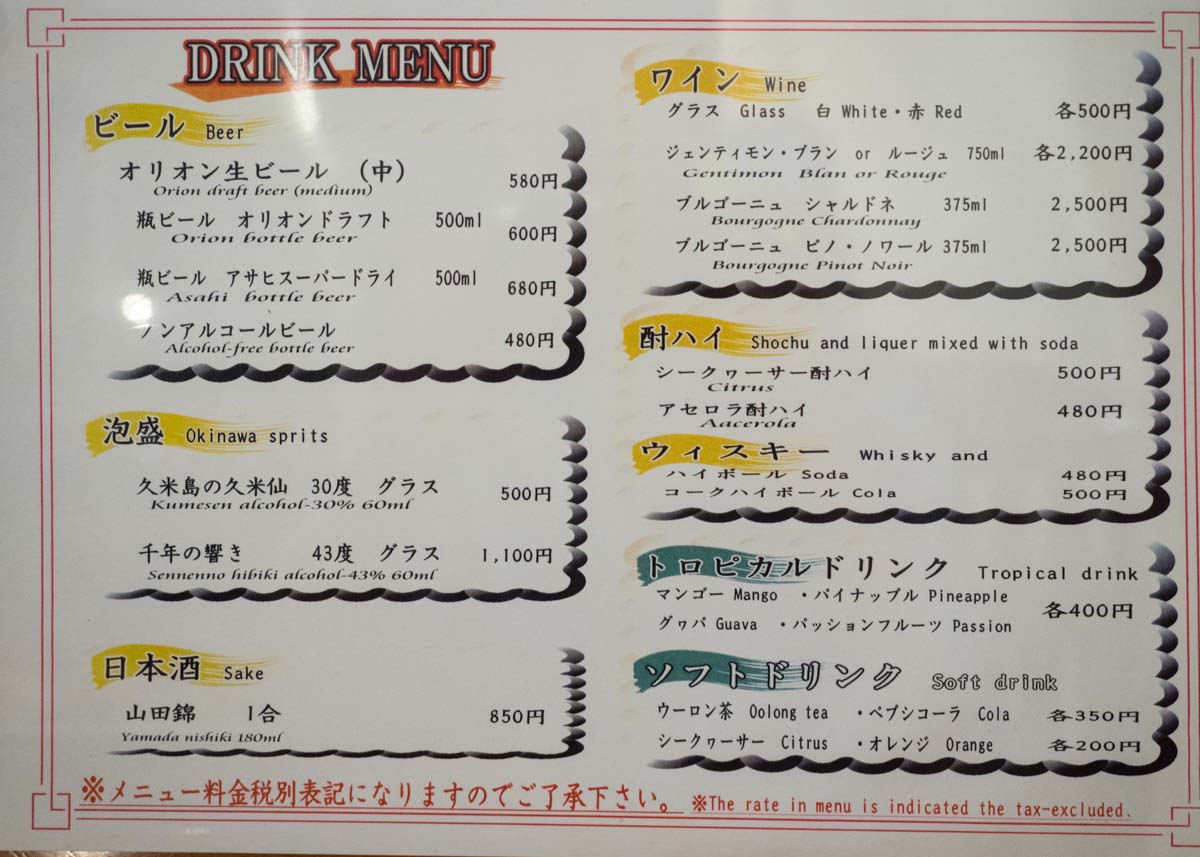 DRINK MENU
ビール Beer
オリオン生ビール （中） 580円
Orion draft beer (medium)
瓶ビール オリオンドラフト 500ml 600円
Orion bottle beer
瓶ビール アサヒスーパードライ 500ml 680円
Asahi bottle beer
ノンアルコールビール 480円
Alcohol-free bottle beer
泡盛 Okinawa sprits
久米島の久米仙 30度 グラス 500円
Kumesen alcohol-30% 60ml
千年の響き 43度 グラス 1,100円
Sennenno hibiki alcohol-43% 60ml
日本酒 Sake
山田錦 1合 850円
Yamada nishiki 180ml
ワイン Wine
グラス Glass 白 White・赤 Red 各500円
ジェンティモン・ブラン or ルージュ 750ml 各2,200円
Gentimon Blan or Rouge
ブルゴーニュ シャルドネ 375ml 2,500円
Bourgogne Chardonnay
ブルゴーニュ ピノ・ノワール 375ml 2,500円
Bourgogne Pinot Noir
酎ハイ Shochu and liquer mixed with soda
シークヮーサー酎ハイ 500円
Citrus
アセロラ酎ハイ 480円
Aacerola
ウィスキー Whisky and
ハイボール Soda 480円
コークハイボール Cola 500円
トロピカルドリンク Tropical drink
マンゴー Mango ・パイナップル Pineapple
各400円
グヮバ Guava ・パッションフルーツ Passion
ソフトドリンク Soft drink
ウーロン茶 Oolong tea ・ペプシコーラ Cola 各350円
シークヮーサー Citrus ・オレンジ Orange 各200円
※メニュー料金税別表記になりますのでご了承下さい。 ※The rate in menu is indicated the tax-excluded.